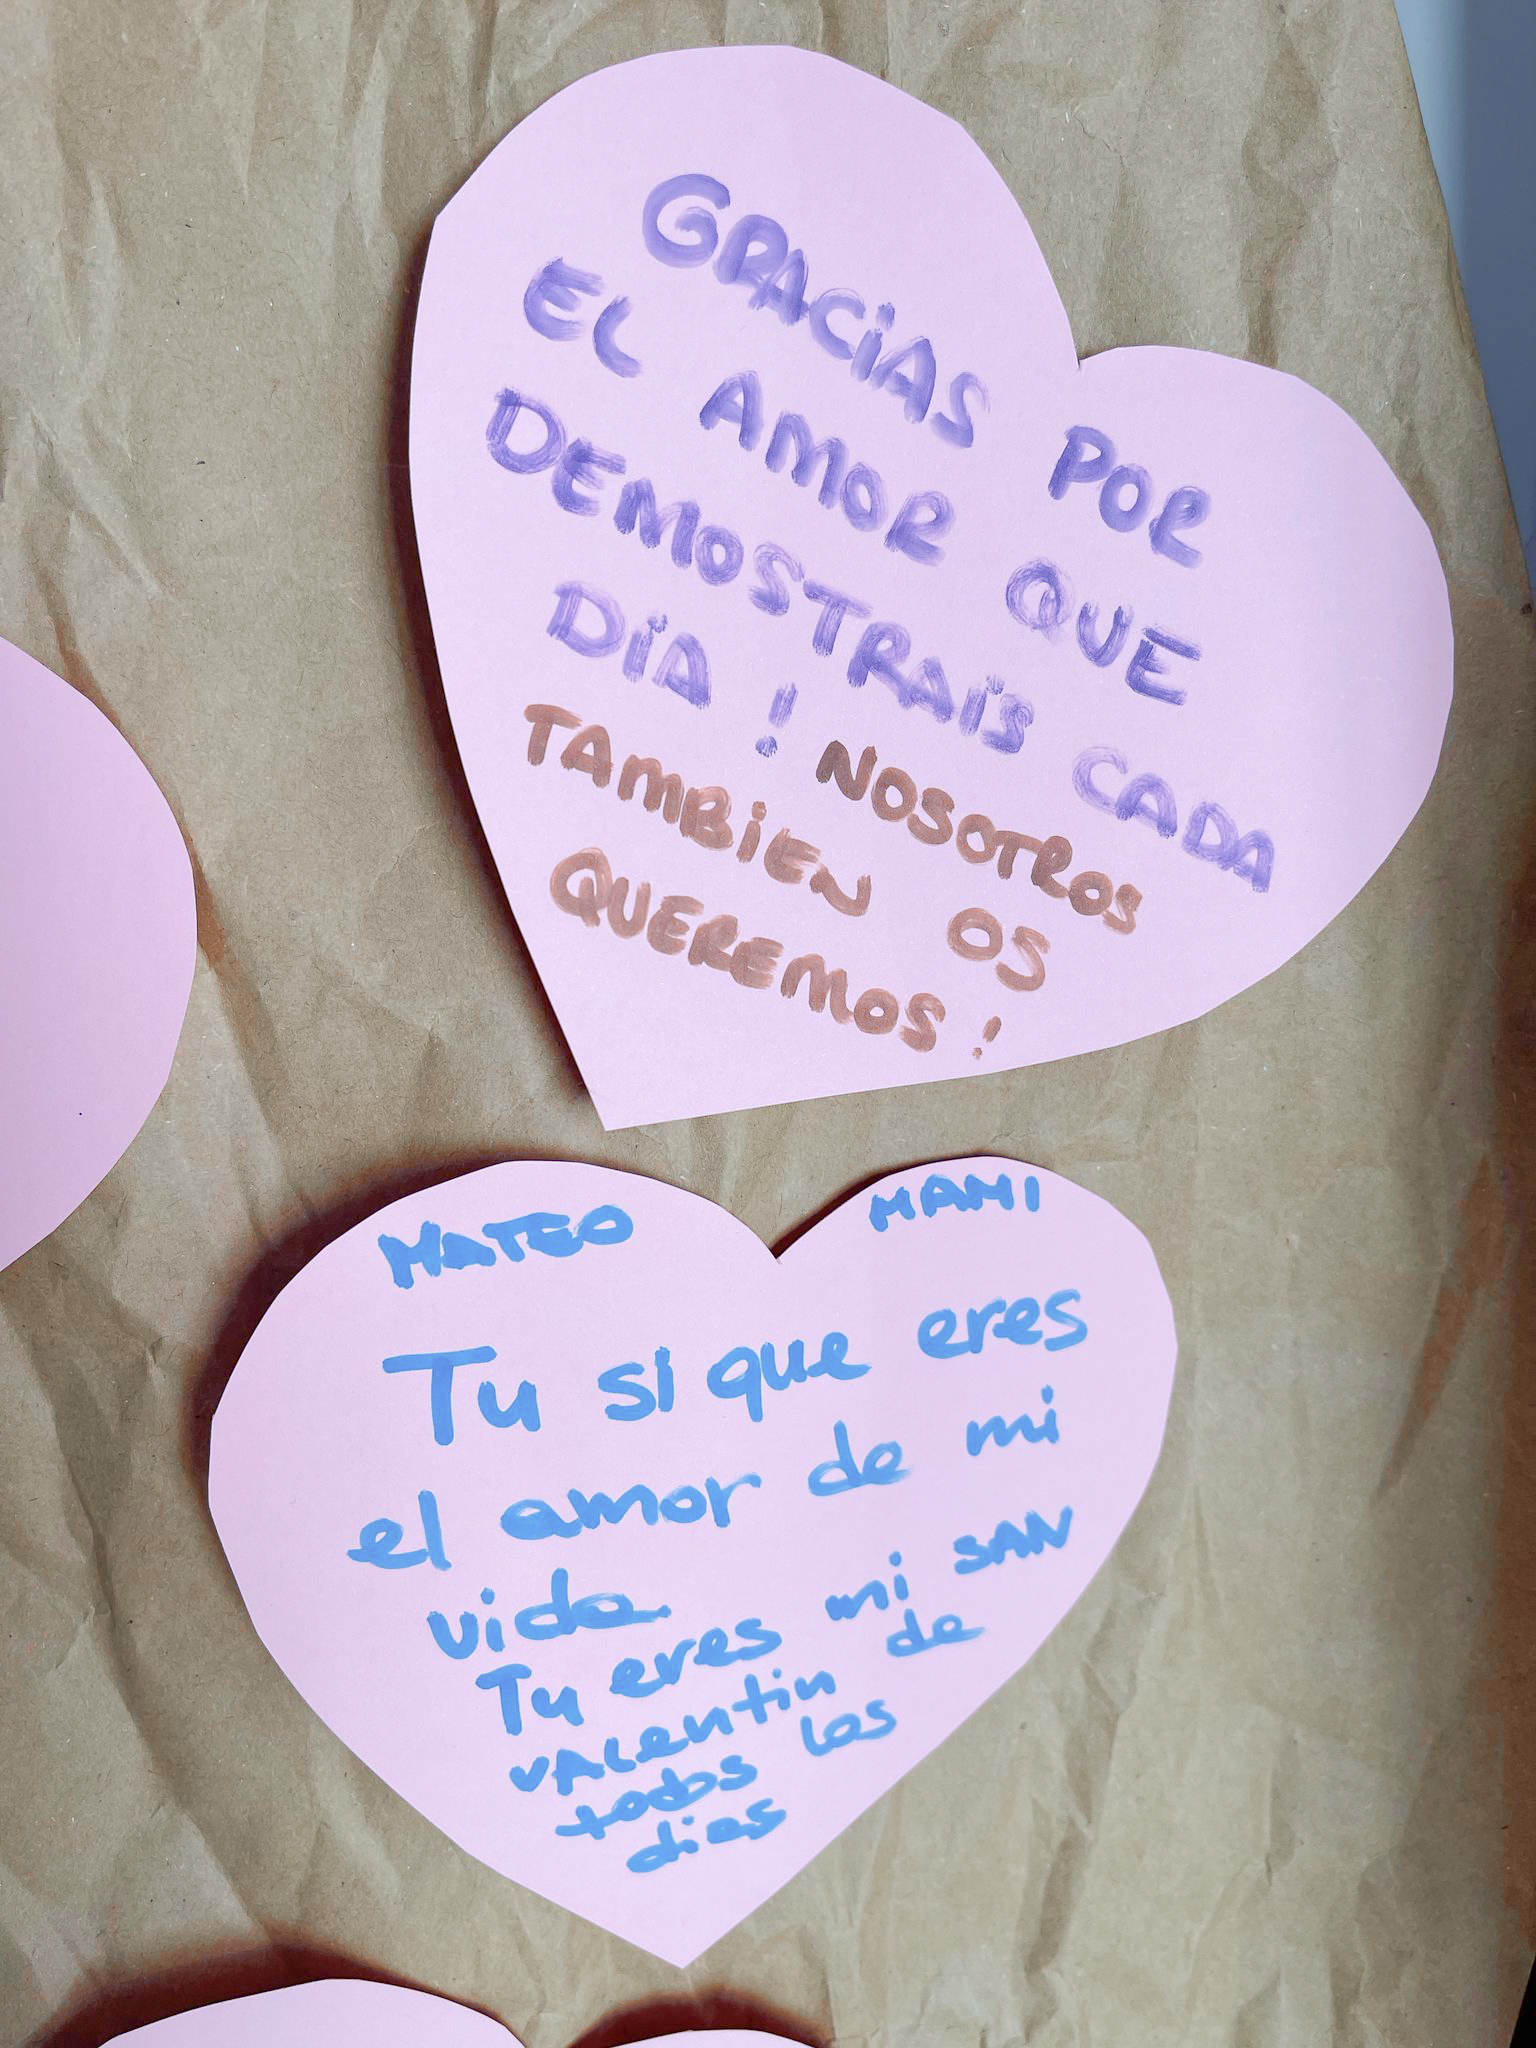 GRACIAS POR
EL AMOR QUE
DEMOSTRAIS CADA
DÍA! NOSOTROS
TAMBIEN OS
QUEREMOS!
MATEO MAMI
Tu si que eres
el amor de mi
vida
Tu eres mi SAN
VALentin de
todos los
dias